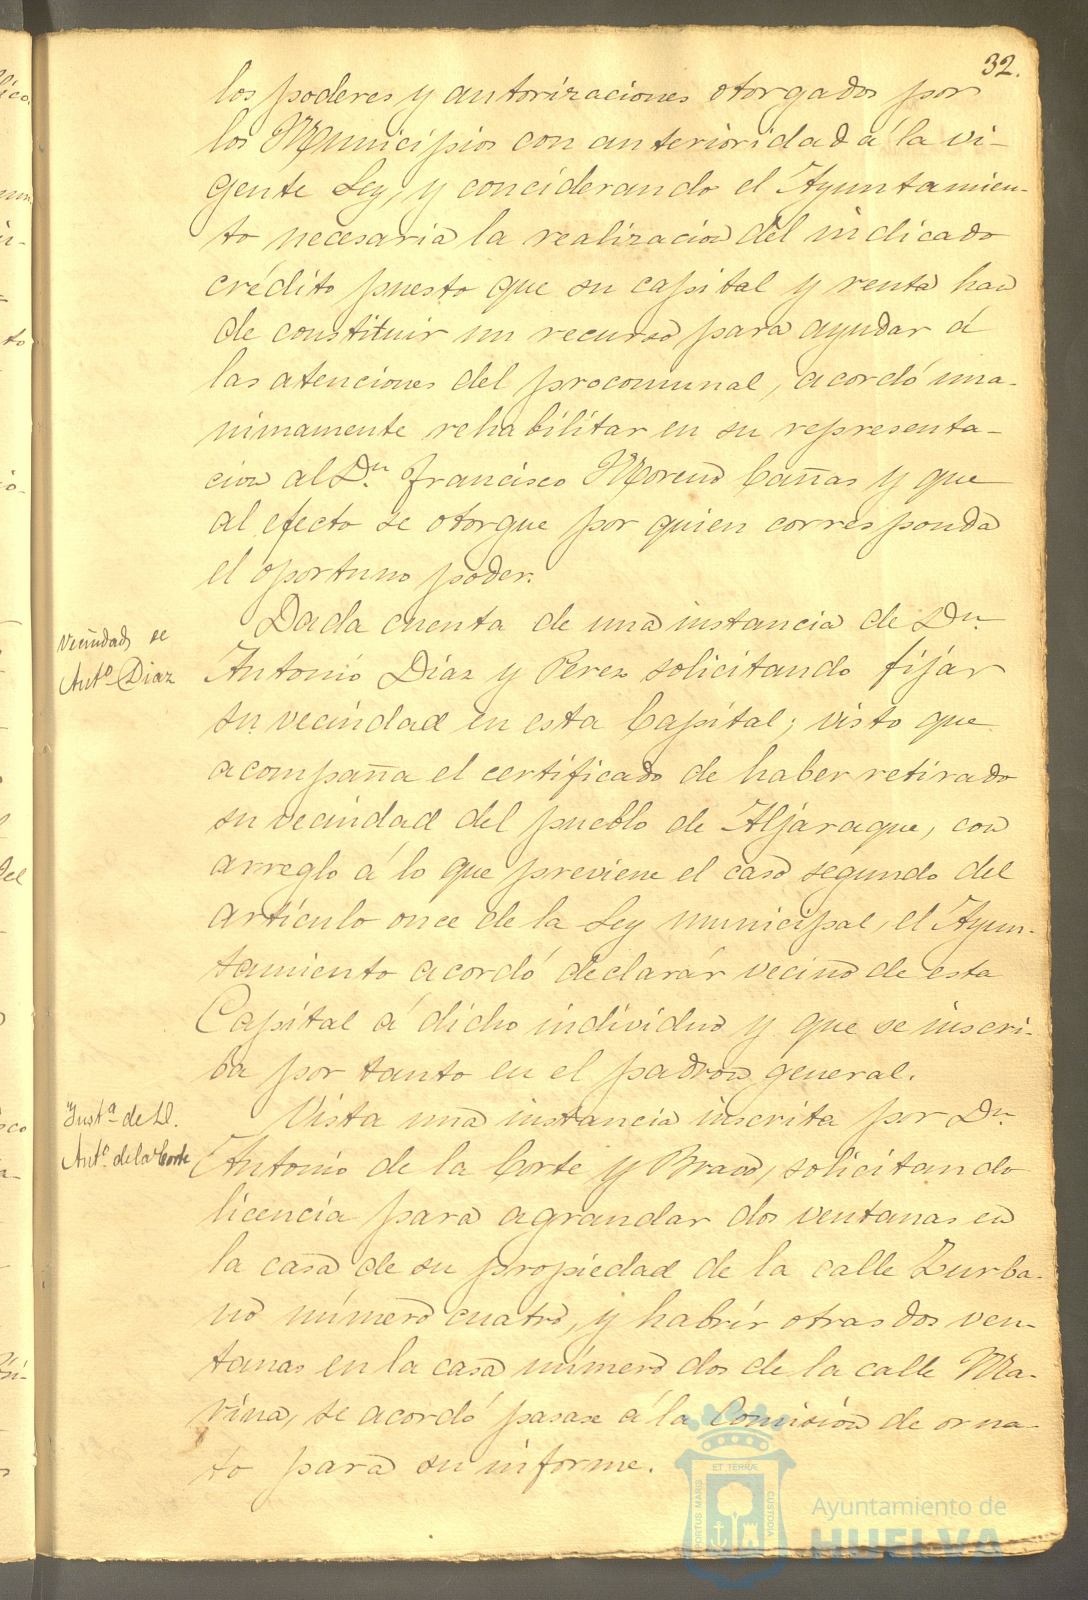 32.
los poderes y autorizaciones otorgados por
los Municipios con anterioridad á la vi-
gente Ley, y conciderando el Ayuntamien-
to necesaria la realizacion del indicado
crédito puesto que su capital y renta han
de constituir un recurso para ayudar á
las atenciones del procomunal, acordó una-
nimamente rehabilitar en su representa-
cion al Dn. Francisco Moreno Cañas y que
al efecto se otorgue por quien corresponda
el oportuno poder.
Vecindad de
Antº Diaz
Dada cuenta de una instancia de Dn.
Antonio Díaz y Perez solicitando fijar
su vecindad en esta Capital; visto que
acompaña el certificado de haber retirado
su vecindad del pueblo de Aljaraque, con
arreglo á lo que previene el caso segundo del
artículo once de la Ley municipal, el Ayun-
tamiento acordó declarár vecino de esta
Capital á dicho individuo y que se inscri-
ba por tanto en el padron general.
Instª de D.
Antº de la Corte
Vista una instancia inscrita por Dn.
Antonio de la Corte y Bravo, solicitando
licencia para agrandar dos ventanas en
la casa de su propiedad de la calle Zurba-
no número cuatro, y habrír otras dos ven-
tanas en la casa número dos de la calle Ma-
rina, se acordó pasase á la Comisión de orna-
to para su informe.
PORTUS MARIS
ET TERRÆ
CUSTODIA
Ayuntamiento de
HUELVA